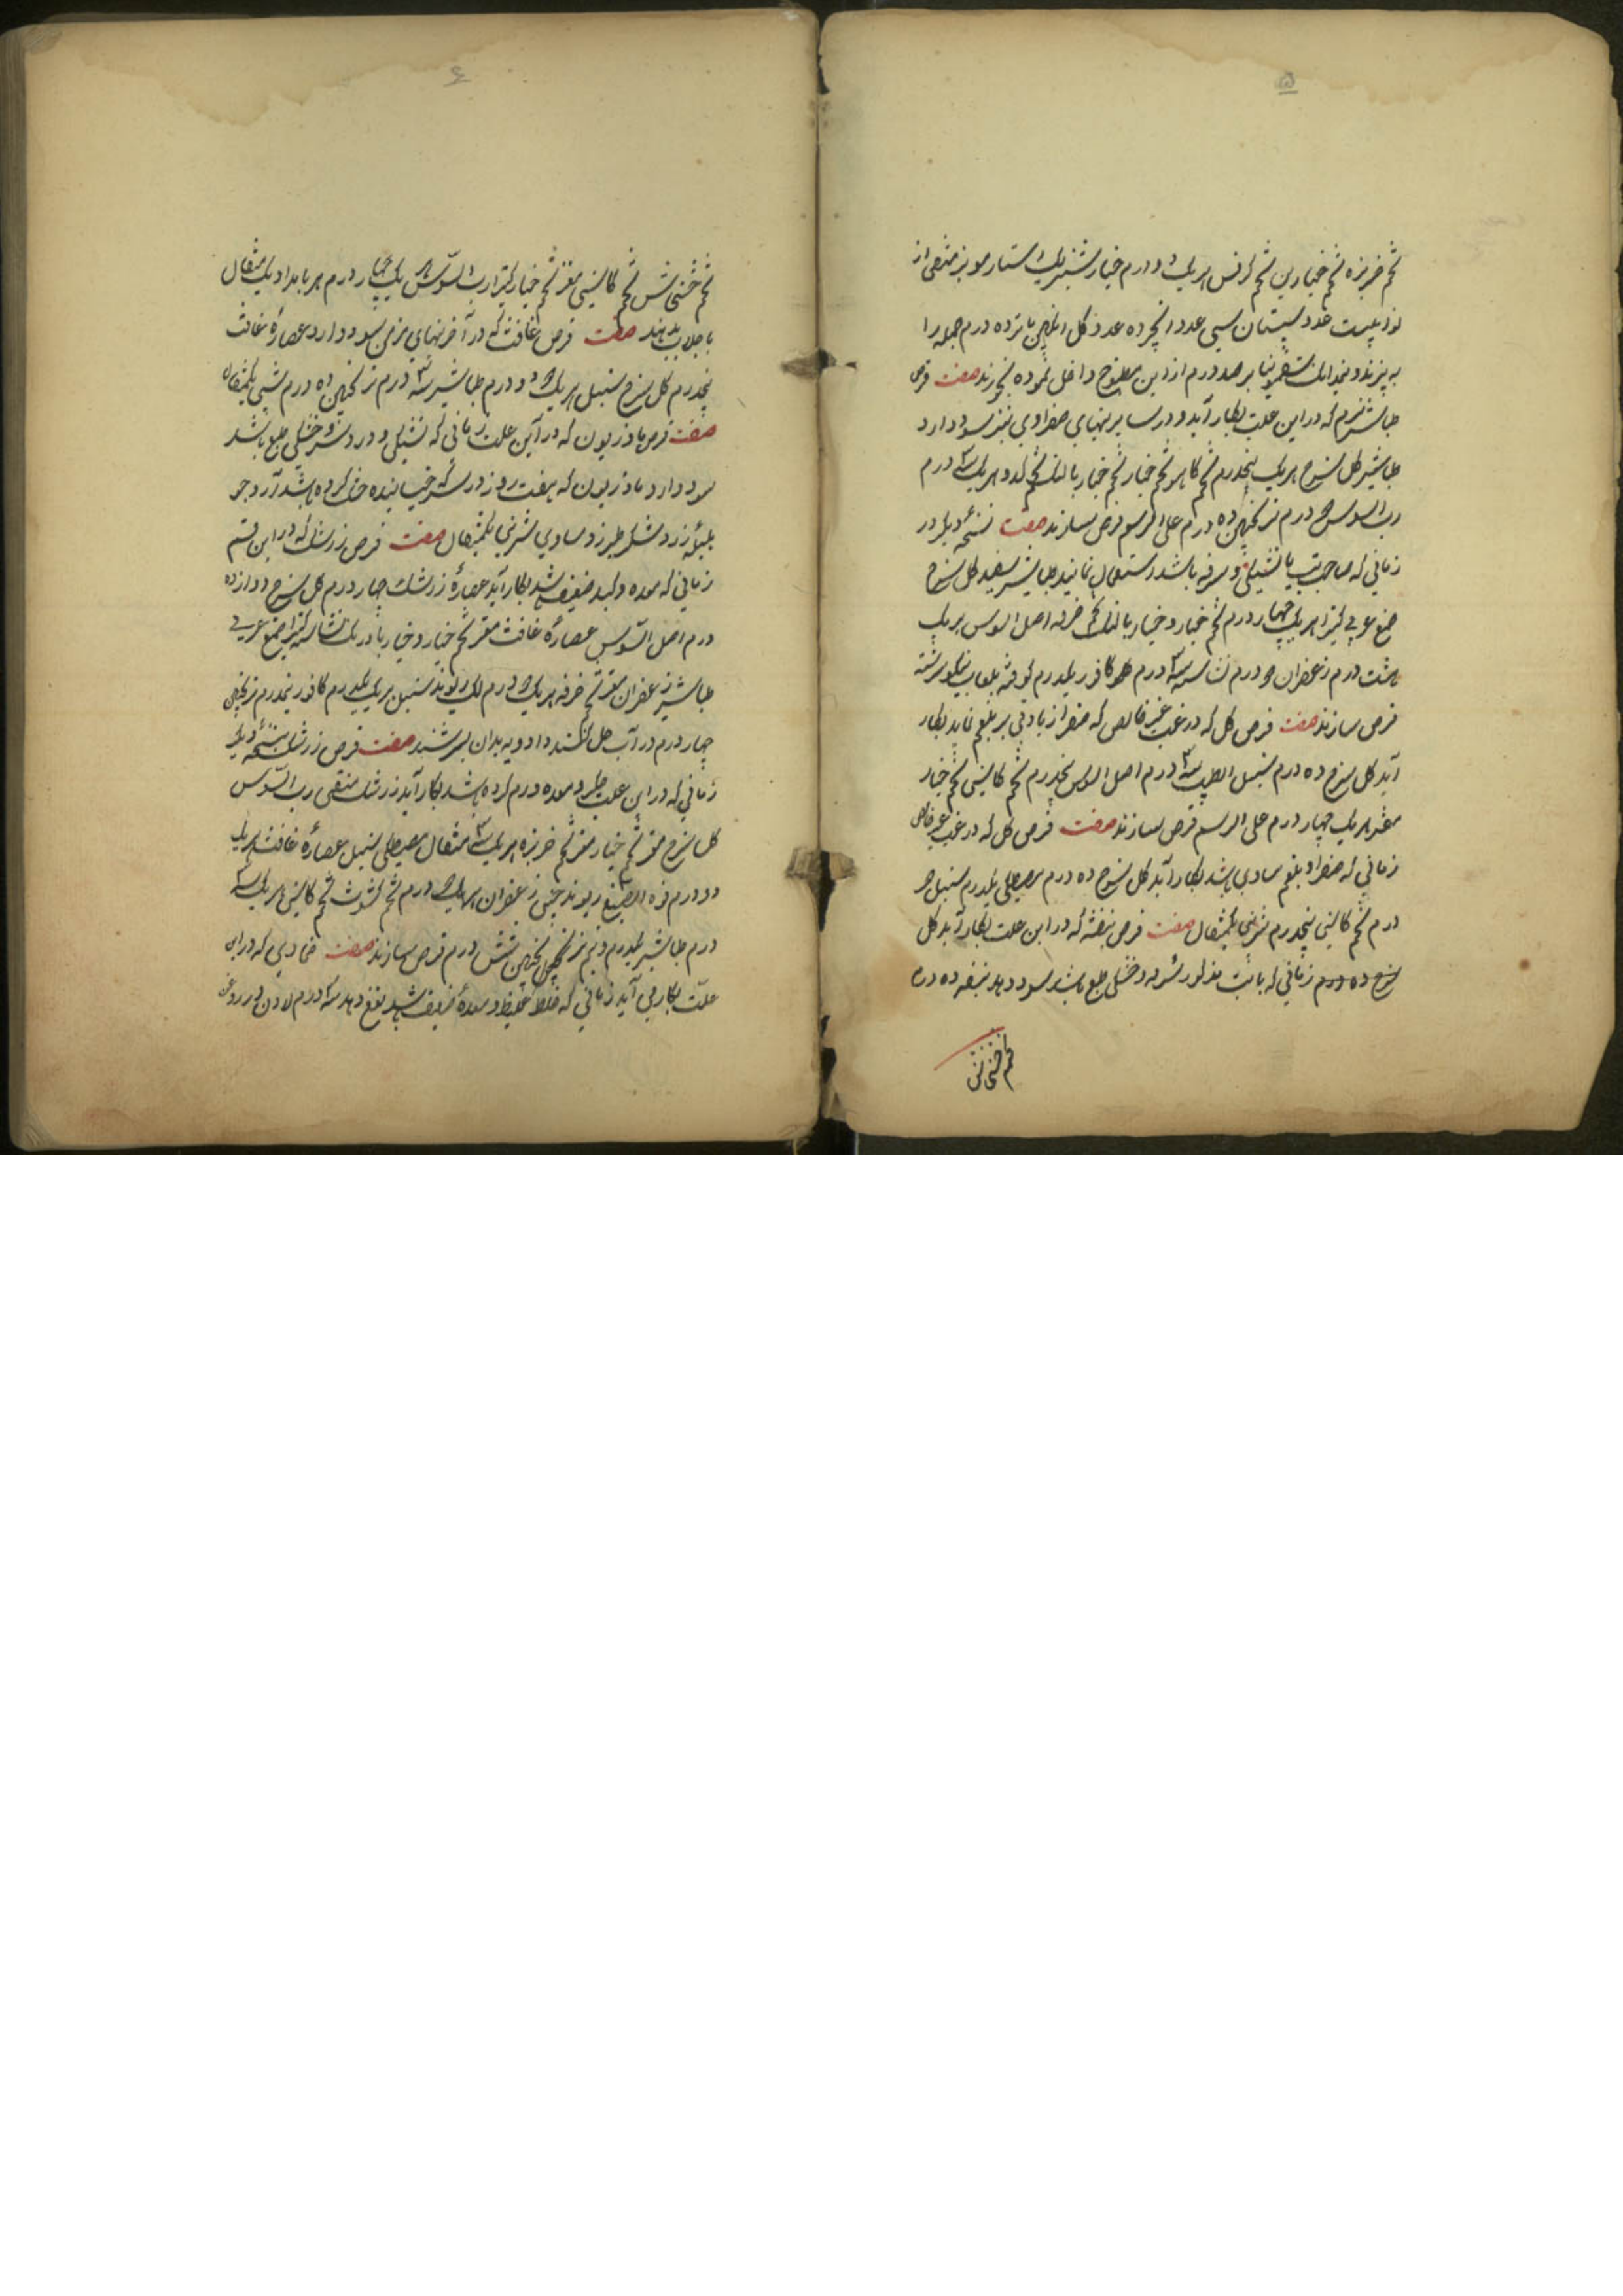 ۵
تخم خربزه تخم خیارین تخم کرفس هریک دو درم خیارشنبر یک استار مویز منقی از
عدد سپستان سی عدد انجیر ده عدد گل درم جمله را
به پزند و نیمدانک سقمونیا بر صد درم ازین مطبوخ داخل نموده بخورند صفت قرص
طباشیر نرم که دراین علت بکار آید و در سایر تبهای صفراوی نیز سود دارد
طباشیر گل سرخ هریک پنجدرم تخم کاهو تخم خیار تخم خیار بالنک تخم کدو هریک سه درم
رب السوس درم ترنجبین ده درم علی الرسم قرص بسازند صفت نسخه دیگر در
زمانی که صاحب تب با تشنگی و سرفه باشد استعمال نمایند طباشیر سفید گل سرخ
صمغ عربی کتیرا هریک چهار درم تخم خیار و خیار بالنک تخم خرفه اصل السوس هریک
هشت درم زعفران درم نشاسته سه درم کافور یکدرم کوفته بلعاب سرشته
قرص سازند صفت قرص گل که در غب غیر خالص که صفرا زیادتی بر بلغم نماید بکار
آید گل سرخ ده درم سنبل الطیب سه درم اصل السوس پنجدرم تخم کاسنی تخم خیار
مقشر هریک چهار درم علی الرسم قرص بسازند صفت قرص گل که در غب غیر خالص
زمانی که صفرا و بلغم مساوی باشد بکار آید گل سرخ ده درم مصطکی یکدرم سنبل
درم تخم کاسنی پنجدرم شربتی یکمثقال صفت قرص بنفشه که دراین علت بکار آید گل
سرخ ده درم زمانی که با تب مذکور سرفه و خشکی طبع باشد سود دهد بنفشه ده درم
تخم خشخاش
۶
تخم خشخاش تخم کاسنی مغز تخم خیار کتیرا رب السوس هر یک چهار درم هر بامداد یک مثقال
با جلاب بدهند صفت قرص غافث که در آخر تبهای مزمن سود دارد عصاره غافث
پنجدرم گل سرخ سنبل هریک دو درم طباشیر سه درم ترنجبین ده درم شربتی یکمثقال
صفت قرص مازریون که دراین علت زمانی که تشنگی و درد و خشکی طبع باشد
سود دارد مازریون که هفت روز در سرکه خیسانیده خشک کرده باشد آرد جو
هلیله زرد شکر طبرزد مساوی شربتی یکمثقال صفت قرص زرشک که دراین قسم
زمانی که معده و کبد ضعیف شد بکار آید عصاره زرشک چهار درم گل سرخ دوازده
درم اصل السوس عصاره غافث مغز تخم خیار و خیار بادرنک نشاسته کتیرا صمغ عربی
طباشیر زعفران مغز تخم خرفه هریک درم لک ریوند سنبل هریک یکدرم کافور نیمدرم ترنجبین
چهار درم در آب حل کنند و ادویه بدان بسرشند صفت قرص زرشک نسخه دیگر
زمانی که دراین علت جگر و معده ورم کرده باشد بکار آید زرشک منقی رب السوس
گل سرخ مغز تخم خیار مغز تخم خربزه هریک سه مثقال مصطکی سنبل عصاره غافث هریک
دو درم فوة الصبغ ریوند چینی زعفران هریک درم تخم کشوث تخم کاسنی هریک سه
درم طباشیر یکدرم و نیم ترنجبین شش درم قرص سازند صفت ضمادی که دراین
علت بکار می آید زمانی که خلط غلیظ و معده ضعیف باشد نفع دهد سه درم لادن